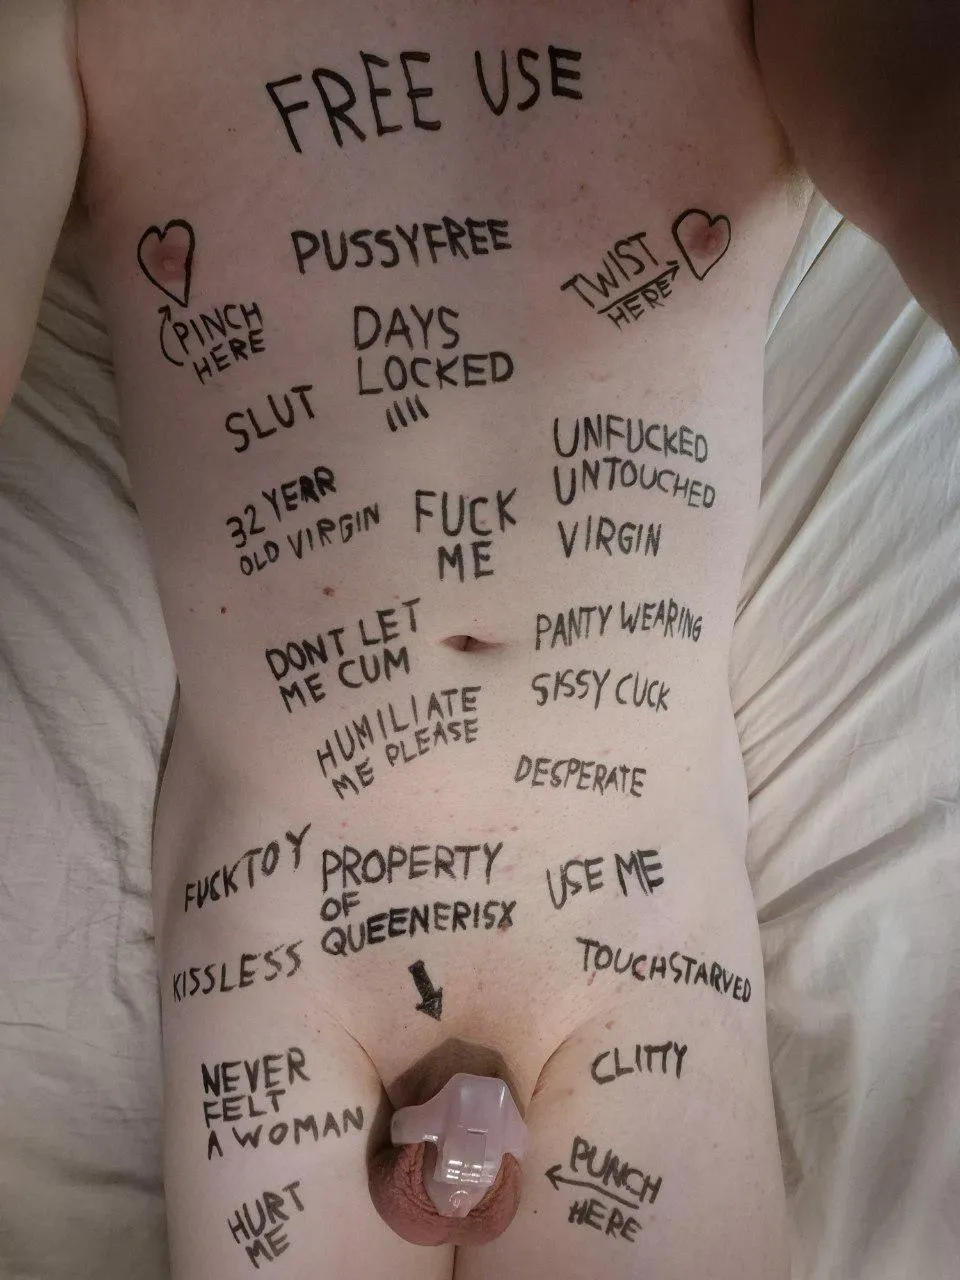 FREE USE
PUSSYFREE
TWIST
HERE
PINCH
HERE
DAYS
LOCKED
IIII
SLUT
UNFUCKED
UNTOUCHED
VIRGIN
32 YERR
OLD VIRGIN
FUCK
ME
DONT LET
ME CUM
PANTY WEARING
SISSY CUCK
HUMILIATE
ME PLEASE
DESPERATE
FUCKTOY
PROPERTY
OF
QUEENERISX
USE ME
KISSLESS
TOUCHSTARVED
NEVER
FELT
A WOMAN
CLITTY
PUNCH
HERE
HURT
ME